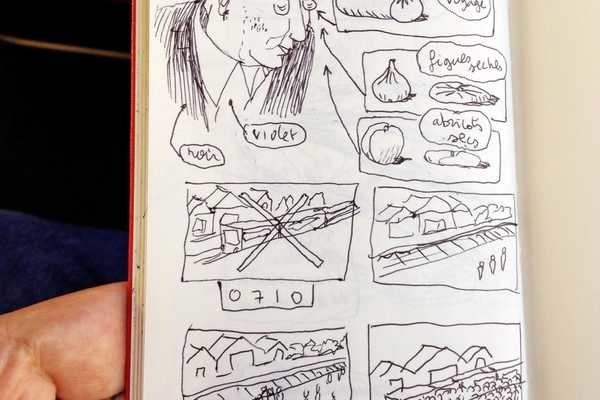 voyage
figues
seches
abricots
secs
violet
noir
0710